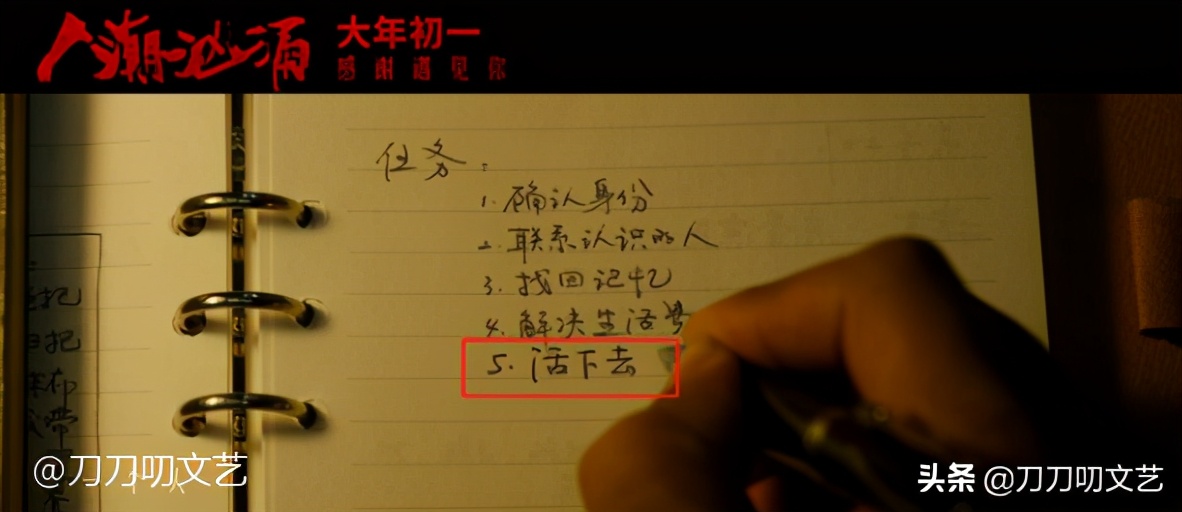 人潮汹涌
大年初一
感谢遇见你
任务:
1. 确认身份
2. 联系认识的人
3. 找回记忆
4. 解决生活费
5. 活下去
@刀刀叨文艺
头条 @刀刀叨文艺